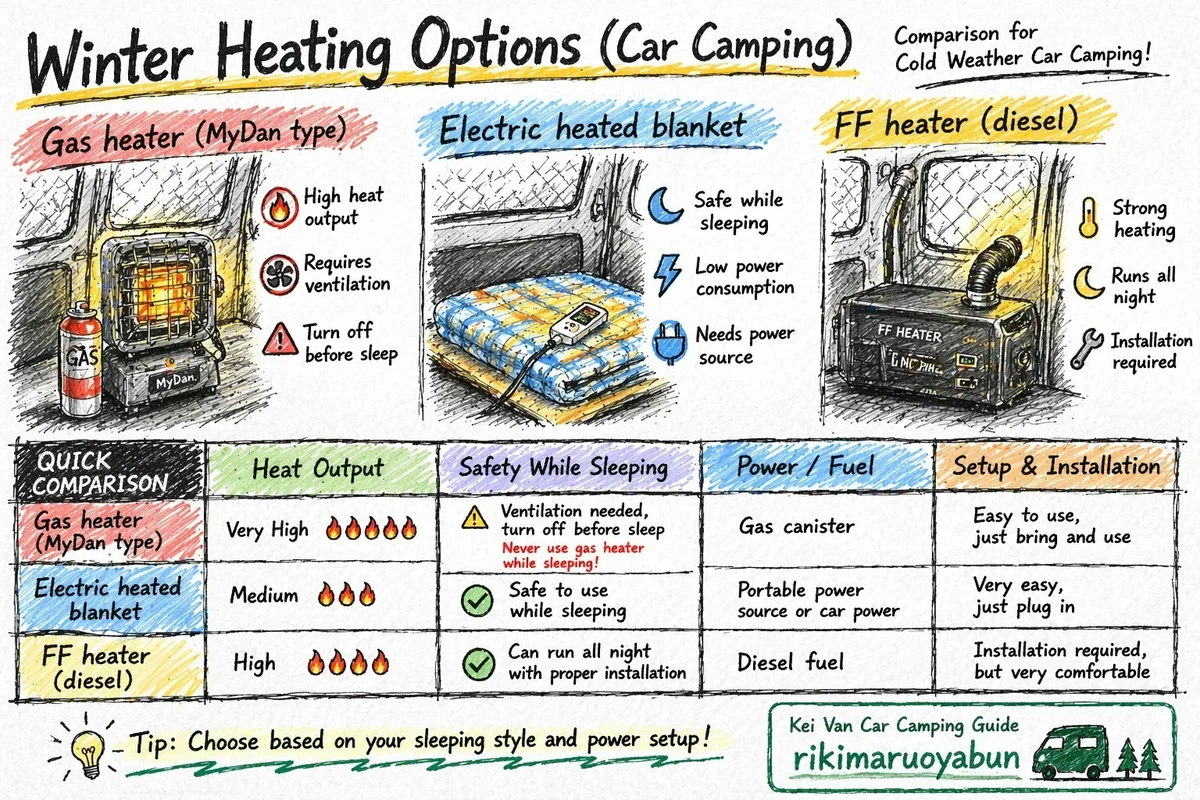 Winter Heating Options (Car Camping)
Comparison for
Cold Weather Car Camping!
Gas heater (MyDan type)
GAS
MyDan.
High heat
output
Requires
ventilation
Turn off
before sleep
Electric heated blanket
Safe while
sleeping
Low power
consumption
Needs power
source
FF heater (diesel)
FF HEATER
Strong
heating
Runs all
night
Installation
required
QUICK
COMPARISON
Heat Output
Safety While Sleeping
Power / Fuel
Setup & Installation
Gas heater
(MyDan type)
Very High
Ventilation needed,
turn off before sleep
Never use gas heater
while sleeping!
Gas canister
Easy to use,
just bring and use
Electric heated
blanket
Medium
Safe to use
while sleeping
Portable power
source or car power
Very easy,
just plug in
FF heater
(diesel)
High
Can run all night
with proper installation
Diesel fuel
Installation required,
but very comfortable
Tip: Choose based on your sleeping style and power setup!
Kei Van Car Camping Guide
rikimaruoyabun